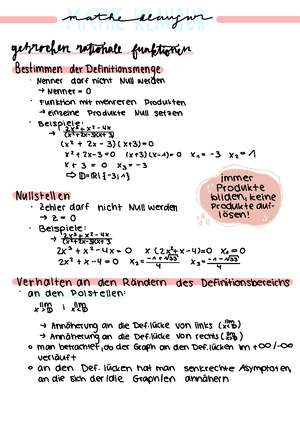 MATHE KLAUSUR
mathe klausur
gebrochen rationale funktionen
Bestimmen der Definitionsmenge
· Nenner darf nicht Null werden
→ Nenner = 0
· Funktion mit mehreren Produkten
→ einzelne Produkte Null setzen
· Beispiele:
→ 2x³+x²-4x
(x²+2x-3)(x+3)
(x² + 2x - 3)(x+3)=0
x² + 2x - 3 = 0 (x+3)(x-1)=0 x₁ = -3 x₂ = 1
x + 3 = 0 x₃ = -3
⇨ D=ℝ\{-3;1}
immer
Produkte
bilden, keine
Produkte auf-
lösen!
Nullstellen
· Zähler darf nicht Null werden
→ Z = 0
· Beispiele:
→ 2x³+x²-4x
(x²+2x-3)(x+3
2x³ + x² - 4x = 0 x (2x²+x-4)=0 x₁ = 0
2x² + x - 4 = 0 x₂ = -1+√33 x₃ = -1-√33
4 4
Verhalten an den Rändern des Definitionsbereichs
· an den Polstellen:
lim ; lim
→ Annäherung an die Def.lücke von links (lim
→ Annäherung an die Def.lücke von rechts (lim
o man betrachtet, ob der Graph an den Def.lücken im +∞/-∞
verläuft
o an den Def. lücken hat man senkrechte Asymptoten,
an die sich der/die Graph/en annähern